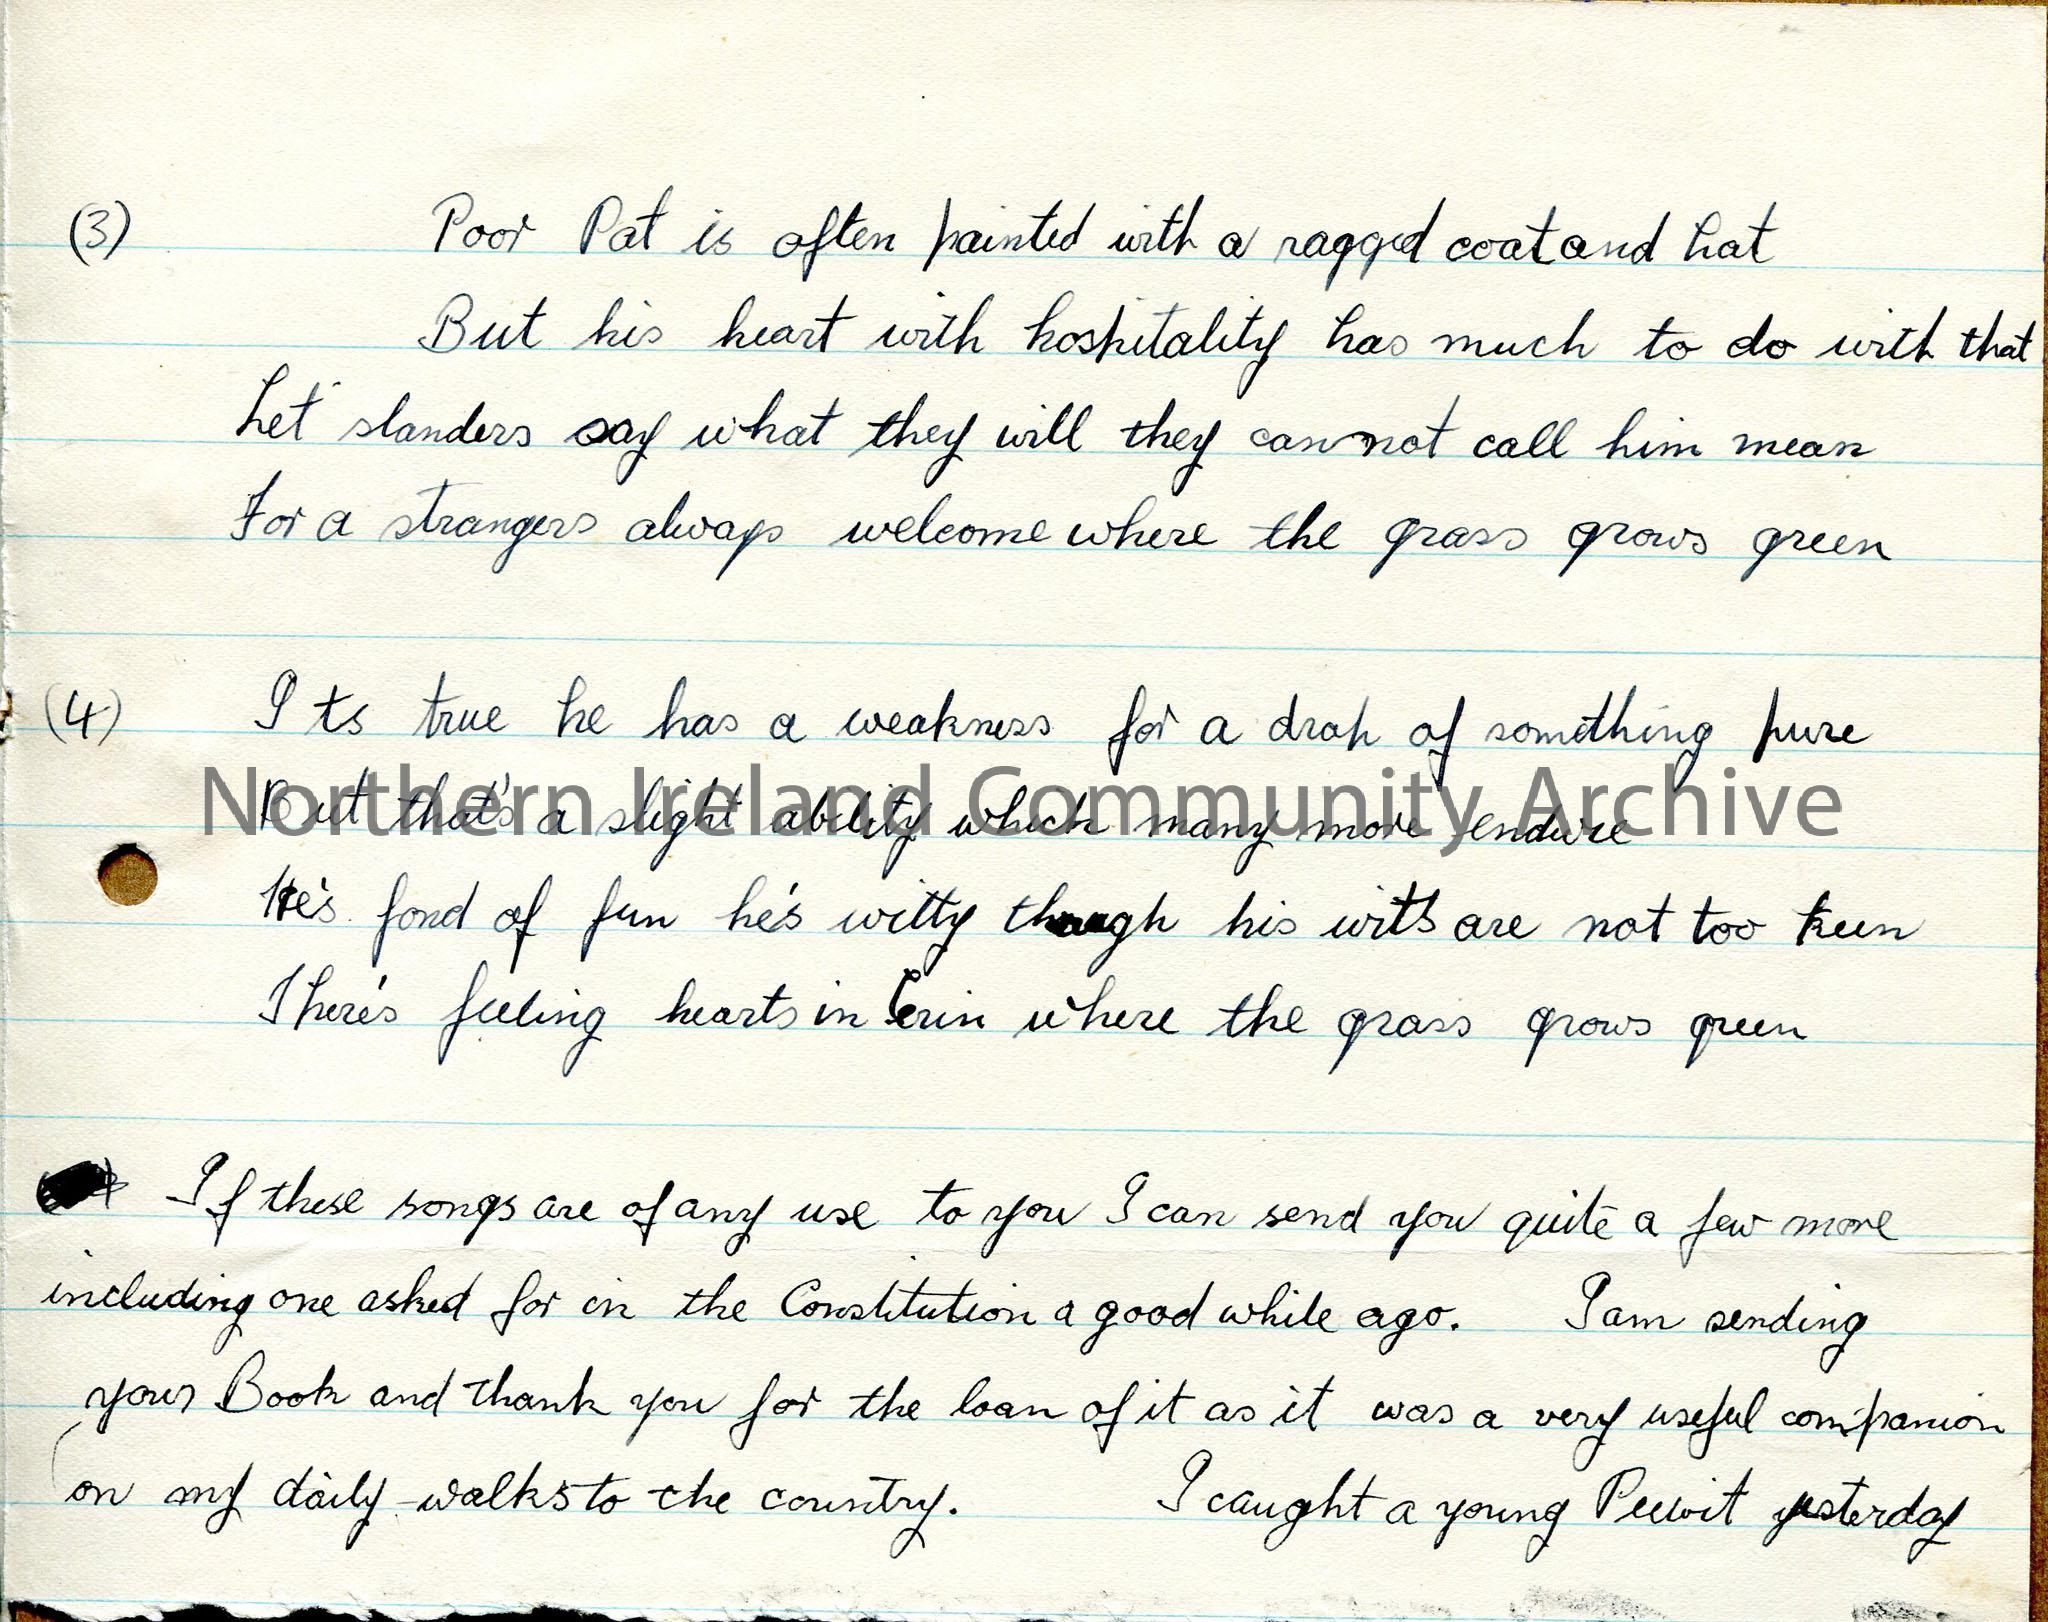 (3) Poor Pat is often painted with a ragged coat and hat
But his heart with hospitality has much to do with that
Let slanders say what they will they cannot call him mean
For a strangers always welcome where the grass grows green
(4) Its true he has a weakness for a drap of something pure
Northern Ireland Community Archive
But that's a slight ability which many more endure
He's fond of fun he's witty though his wits are not too keen
There's feeling hearts in Erin where the grass grows green
If these songs are of any use to you I can send you quite a few more
including one asked for in the Constitution a good while ago. I am sending
your Book and thank you for the loan of it as it was a very useful companion
on my daily walks to the country. I caught a young Peewit yesterday